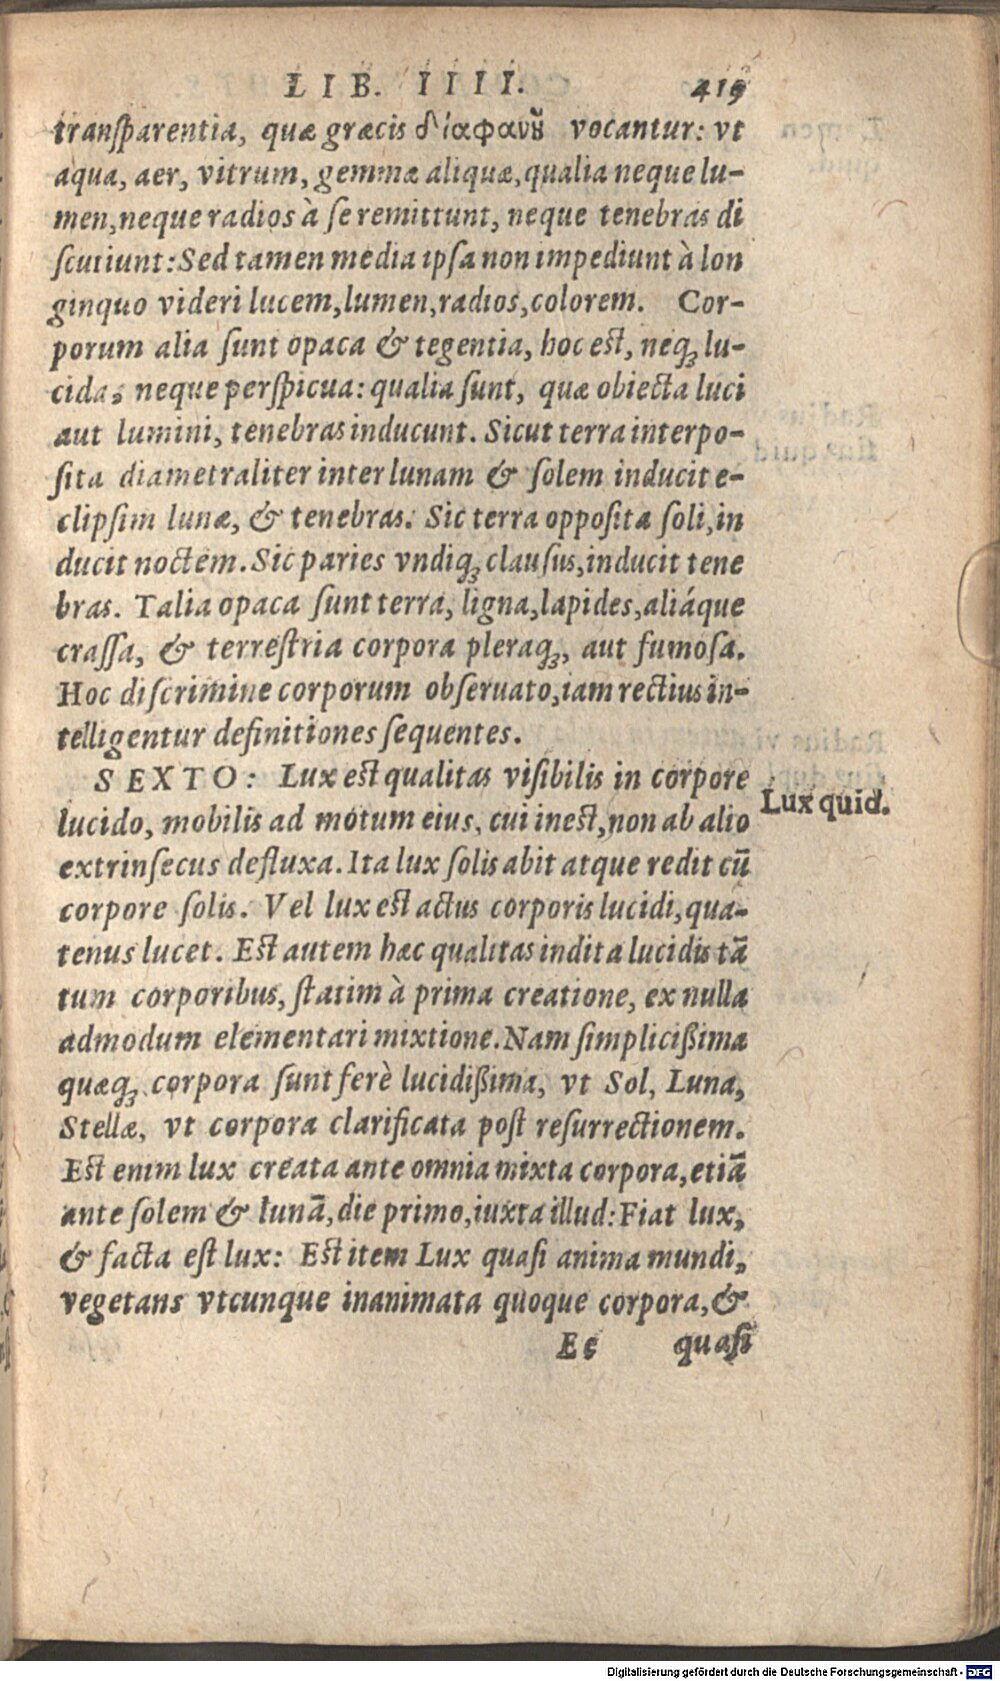 LIB. IIII. 419
transparentia, quæ græcis διαφανῦ vocantur: vt
aqua, aer, vitrum, gemmæ aliquæ, qualia neque lu-
men, neque radios à se remittunt, neque tenebras di
scutiunt: Sed tamen media ipsa non impediunt à lon
ginquo videri lucem, lumen, radios, colorem. Cor-
porum alia sunt opaca & tegentia, hoc est, neqꝫ lu-
cida, neque perspicua: qualia sunt, quæ obiecta luci
aut lumini, tenebras inducunt. Sicut terra interpo-
sita diametraliter inter lunam & solem inducit e-
clipsim lunæ, & tenebras. Sic terra opposita soli, in
ducit noctem. Sic paries vndiqꝫ clausus, inducit tene
bras. Talia opaca sunt terra, ligna, lapides, aliáque
crassa, & terrestria corpora pleraqꝫ, aut fumosa.
Hoc discrimine corporum obseruato, iam rectius in-
telligentur definitiones sequentes.
SEXTO: Lux est qualitas visibilis in corpore
Lux quid.
lucido, mobilis ad motum eius, cui inest, non ab alio
extrinsecus defluxa. Ita lux solis abit atque redit cū
corpore solis. Vel lux est actus corporis lucidi, qua-
tenus lucet. Est autem hæc qualitas indita lucidis tā
tum corporibus, statim à prima creatione, ex nulla
admodum elementari mixtione. Nam simplicißima
quæqꝫ corpora sunt ferè lucidißima, vt Sol, Luna,
Stellæ, vt corpora clarificata post resurrectionem.
Est enim lux creata ante omnia mixta corpora, etiā
ante solem & lunā, die primo, iuxta illud: Fiat lux,
& facta est lux: Est item Lux quasi anima mundi,
vegetans vtcunque inanimata quoque corpora, &
Ee quasi
Digitalisierung gefördert durch die Deutsche Forschungsgemeinschaft - DFG